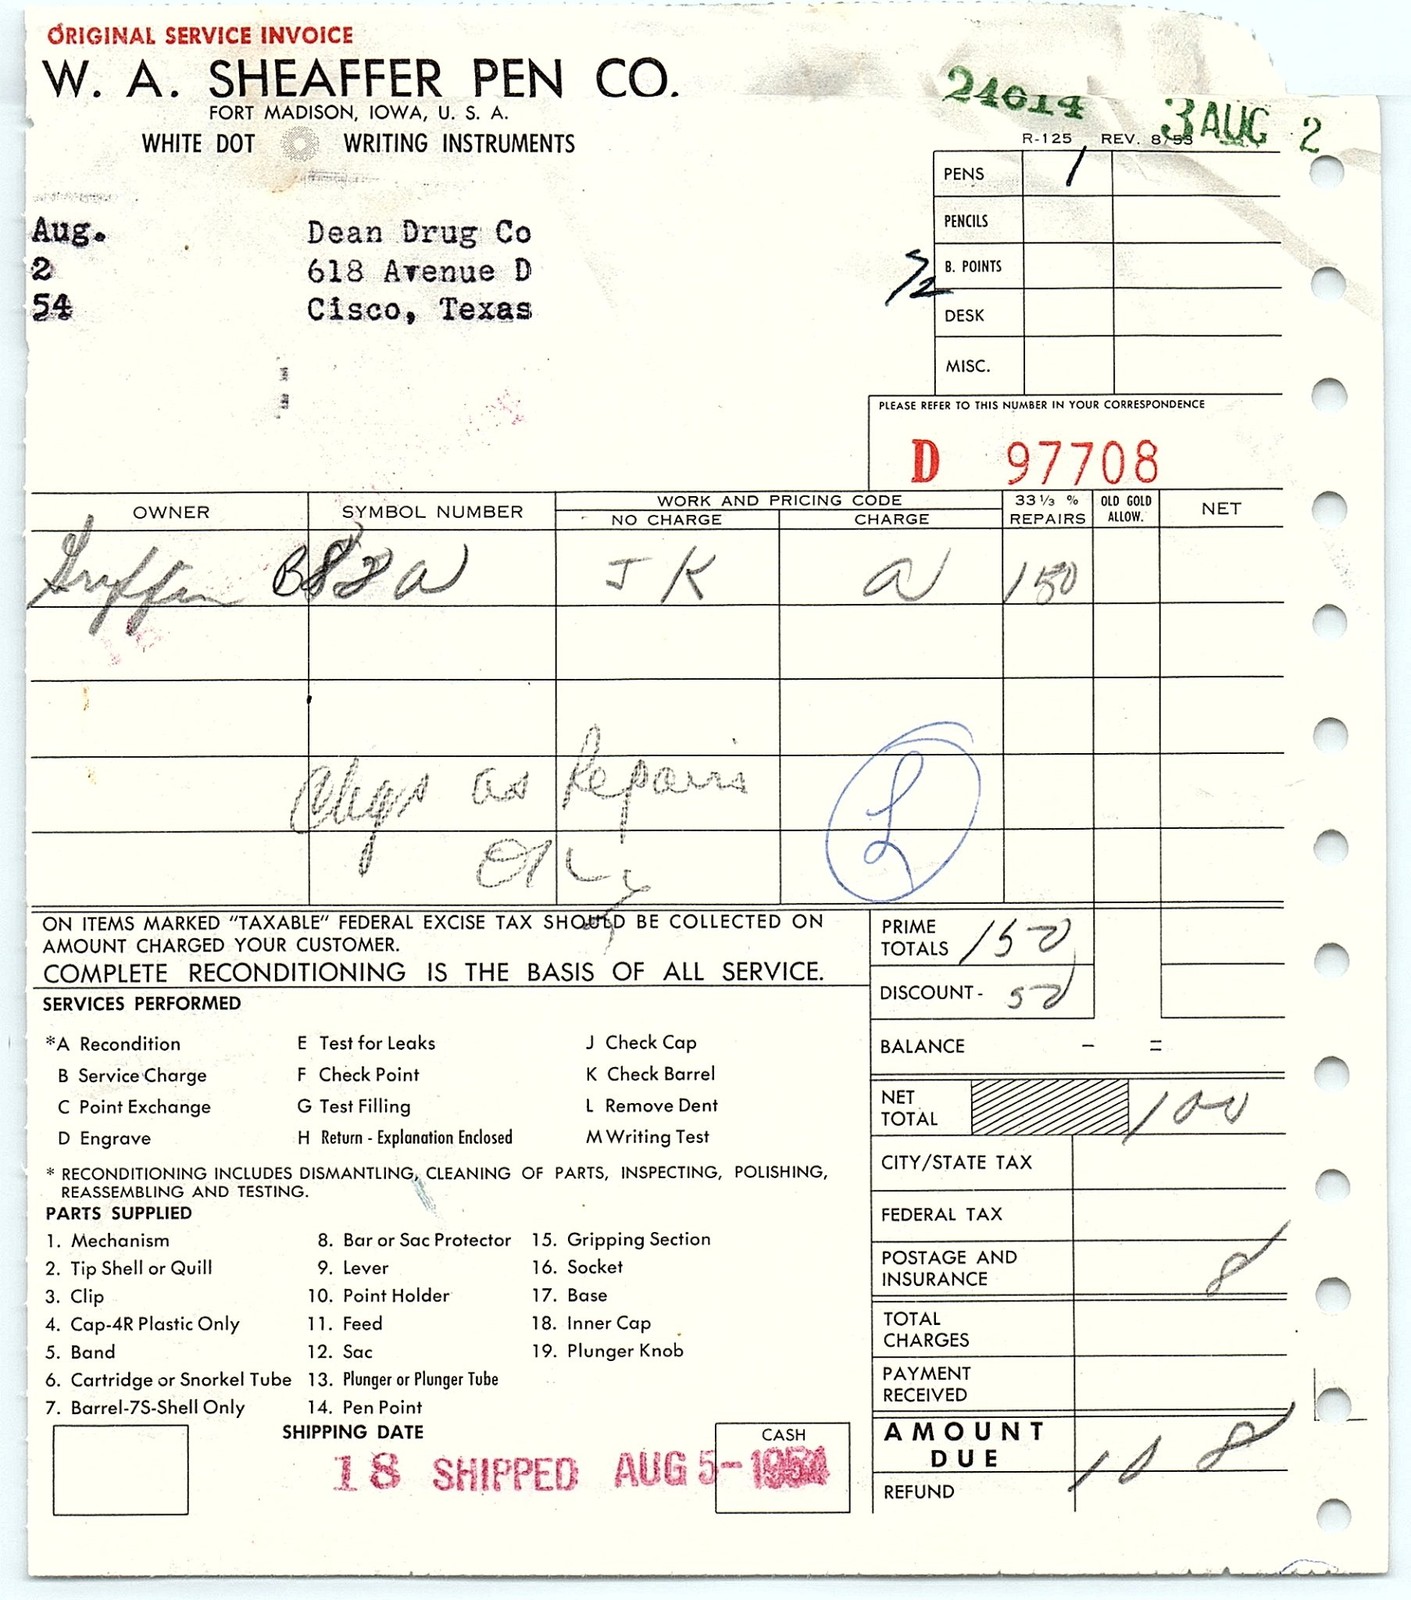 ORIGINAL SERVICE INVOICE
W. A. SHEAFFER PEN CO.
FORT MADISON, IOWA, U. S. A.
WHITE DOT WRITING INSTRUMENTS
24614 3 AUG 2
R-125 REV. 8/53
Aug. Dean Drug Co
2 618 Avenue D
54 Cisco, Texas
PENS 1
PENCILS
B. POINTS
DESK
MISC.
PLEASE REFER TO THIS NUMBER IN YOUR CORRESPONDENCE
D 97708
OWNER SYMBOL NUMBER WORK AND PRICING CODE 33 1/3 % REPAIRS OLD GOLD ALLOW. NET
NO CHARGE CHARGE
Griffin B82a J K a 150
Chgs as Repairs
L
ON ITEMS MARKED "TAXABLE" FEDERAL EXCISE TAX SHOULD BE COLLECTED ON
AMOUNT CHARGED YOUR CUSTOMER.
COMPLETE RECONDITIONING IS THE BASIS OF ALL SERVICE.
PRIME TOTALS 150
DISCOUNT - 50
BALANCE - =
NET TOTAL 100
CITY/STATE TAX
FEDERAL TAX
POSTAGE AND INSURANCE 8
TOTAL CHARGES
PAYMENT RECEIVED
AMOUNT DUE 108
REFUND
SERVICES PERFORMED
*A Recondition E Test for Leaks J Check Cap
B Service Charge F Check Point K Check Barrel
C Point Exchange G Test Filling L Remove Dent
D Engrave H Return - Explanation Enclosed M Writing Test
* RECONDITIONING INCLUDES DISMANTLING, CLEANING OF PARTS, INSPECTING, POLISHING,
REASSEMBLING AND TESTING.
PARTS SUPPLIED
1. Mechanism 8. Bar or Sac Protector 15. Gripping Section
2. Tip Shell or Quill 9. Lever 16. Socket
3. Clip 10. Point Holder 17. Base
4. Cap-4R Plastic Only 11. Feed 18. Inner Cap
5. Band 12. Sac 19. Plunger Knob
6. Cartridge or Snorkel Tube 13. Plunger or Plunger Tube
7. Barrel-7S-Shell Only 14. Pen Point
SHIPPING DATE CASH
18 SHIPPED AUG 5-1954